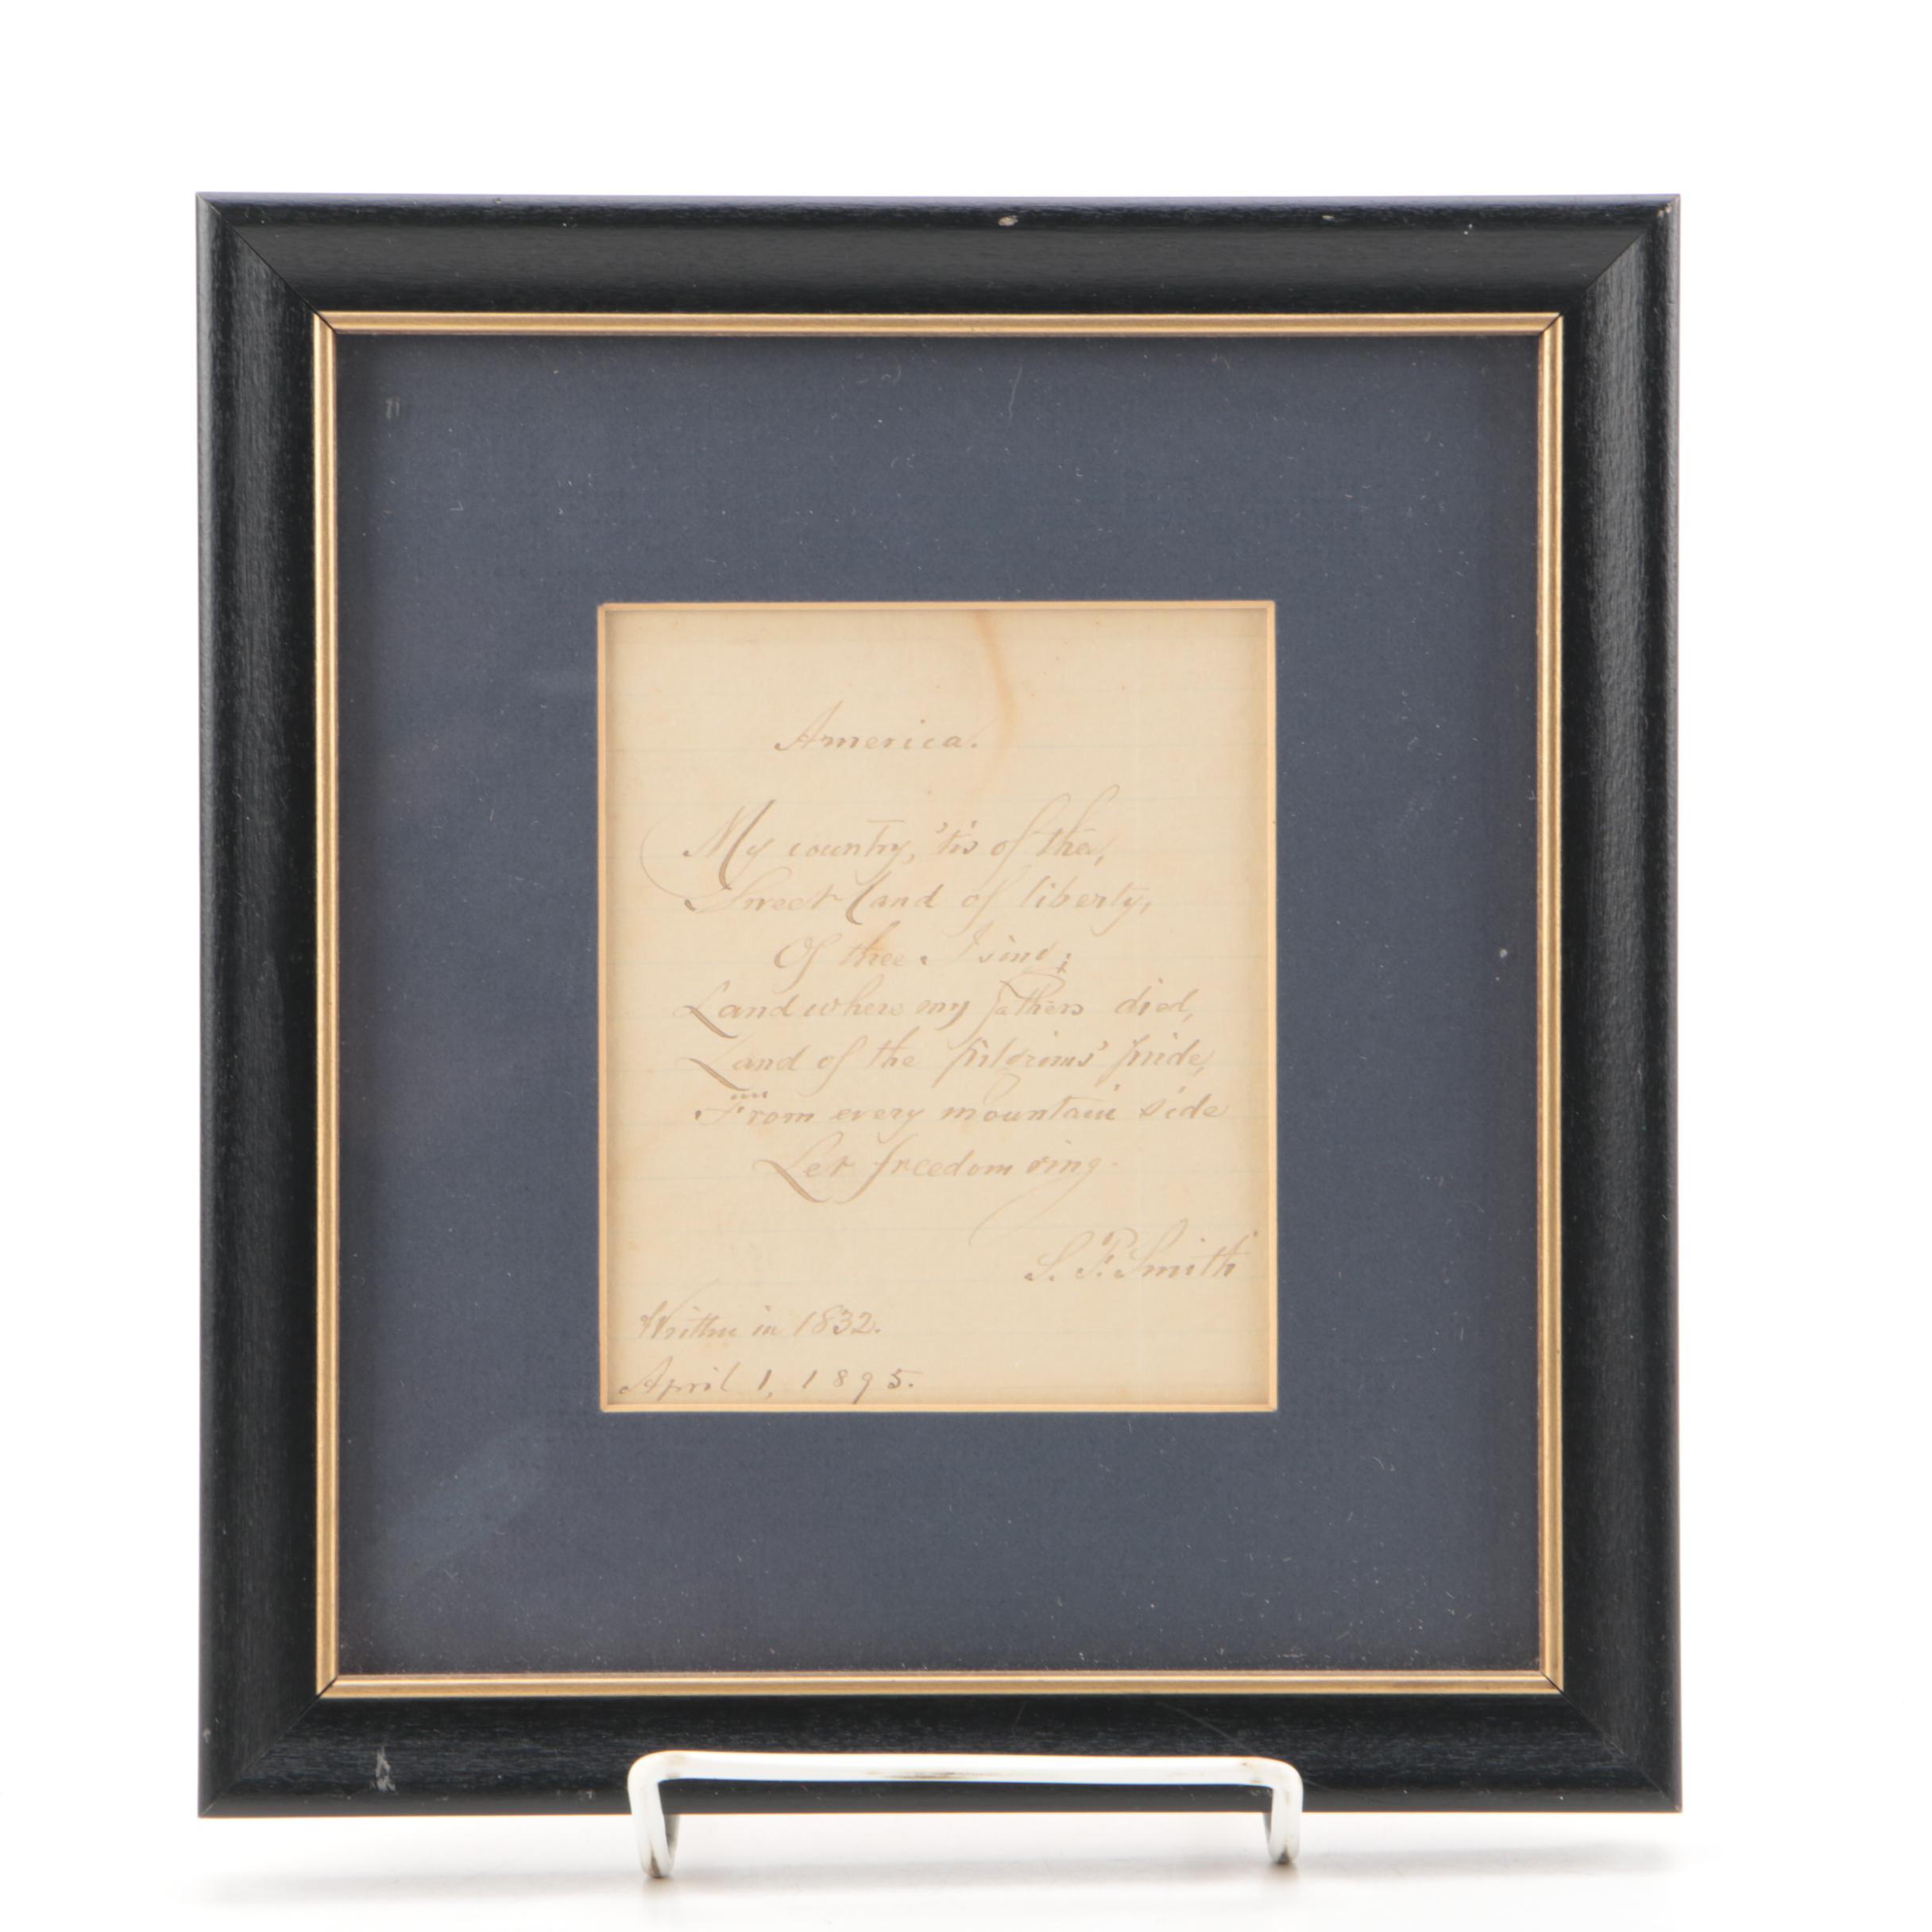 America.
My country, 'tis of thee,
Sweet land of liberty,
Of thee I sing;
Land where my fathers died,
Land of the pilgrims' pride,
From every mountain side
Let freedom ring.
S. F. Smith
Written in 1832.
April 1, 1895.